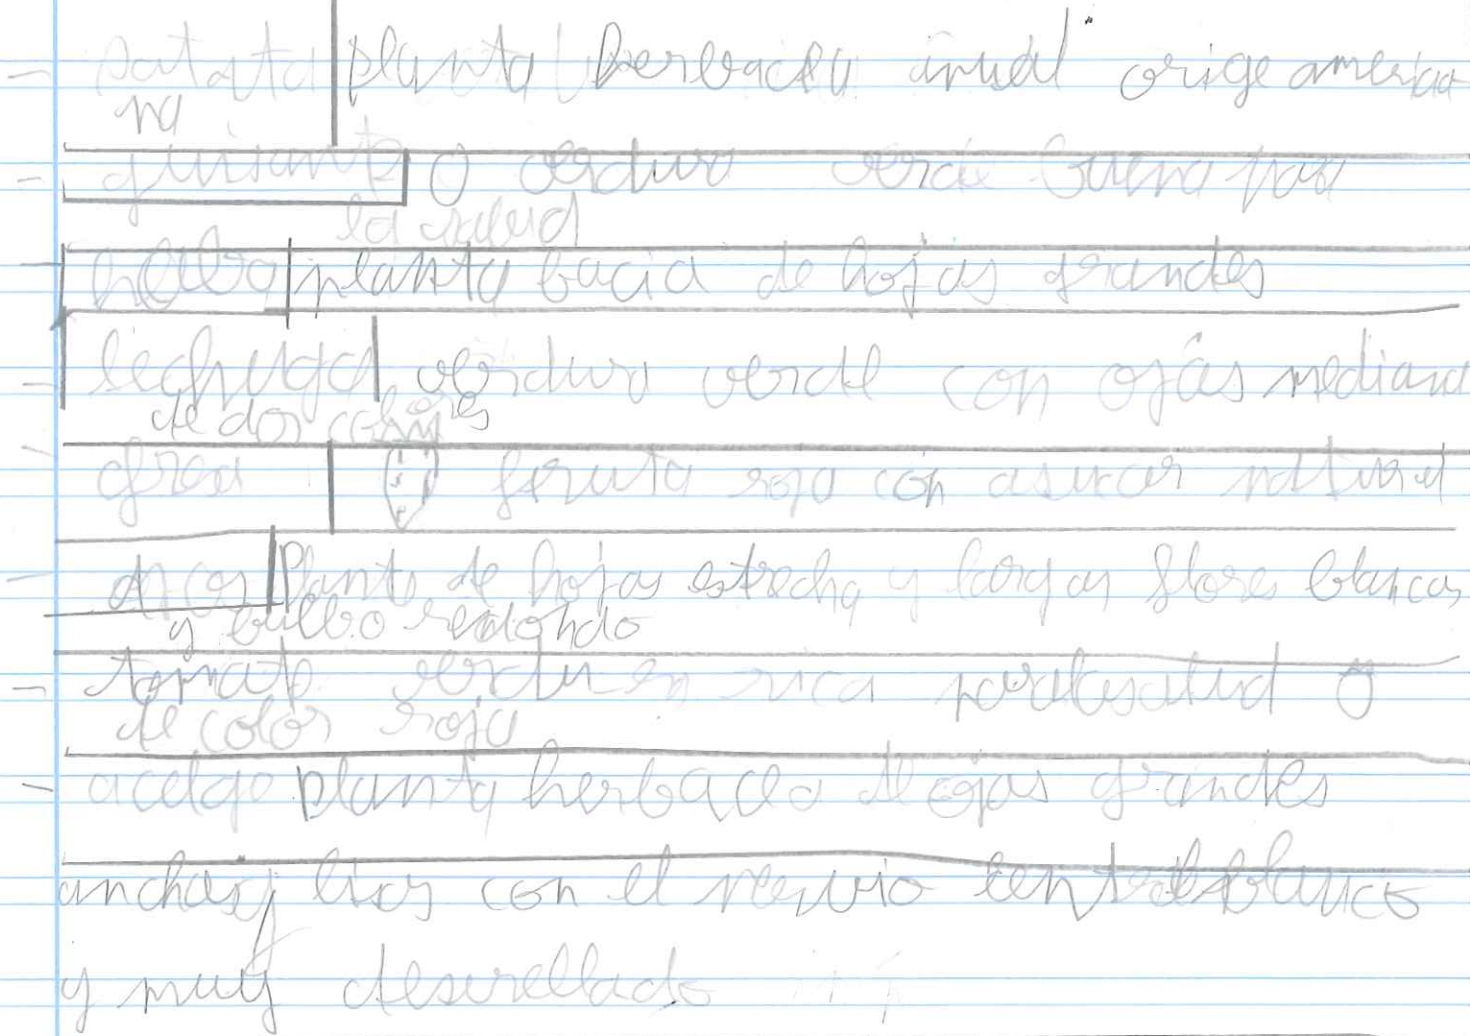 - patata planta herbacea anual orige america
na
- guisante verdura verde buena para
la salud
- planta bacia de hojas grandes
- lechuga verdura verde con ojas mediana
de dos colores
- fresa fruta roja con asucar natural
- Planta de hojas estrecha y largas flores blancas
y bulbo redondo
- tomate verdura rica paralasalud
de color rojo
- acelga planta herbacea de ojas grandes
anchas y lisas con el nervio central blanco
y muy deserellado